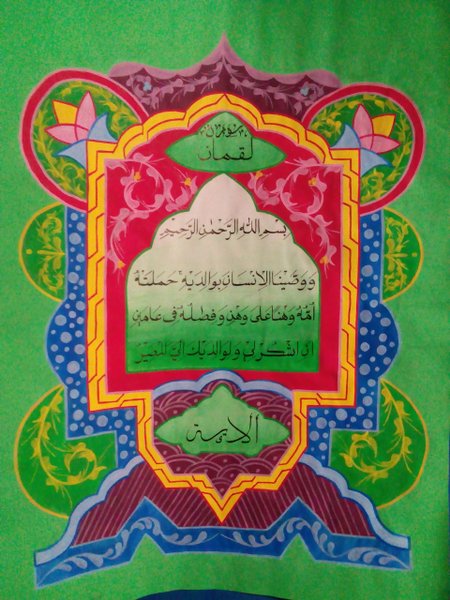 لقمان
بِسْمِ اللّٰهِ الرَّحْمٰنِ الرَّحِيْمِ
وَوَصَّيْنَا الْاِنْسَانَ بِوَالِدَيْهِۚ حَمَلَتْهُ
اُمُّهُ وَهْنًا عَلٰى وَهْنٍ وَفِصٰلُهُ فِيْ عَامَيْنِ
اَنِ اشْكُرْ لِيْ وَلِوَالِدَيْكَ اِلَيَّ الْمَصِيْرُ
الاية